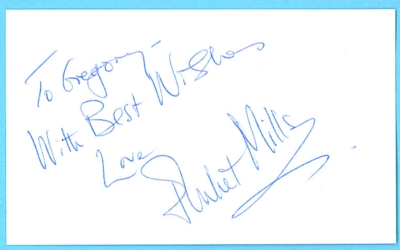 To Gregory -
With Best Wishes
Love
Juliet Mills